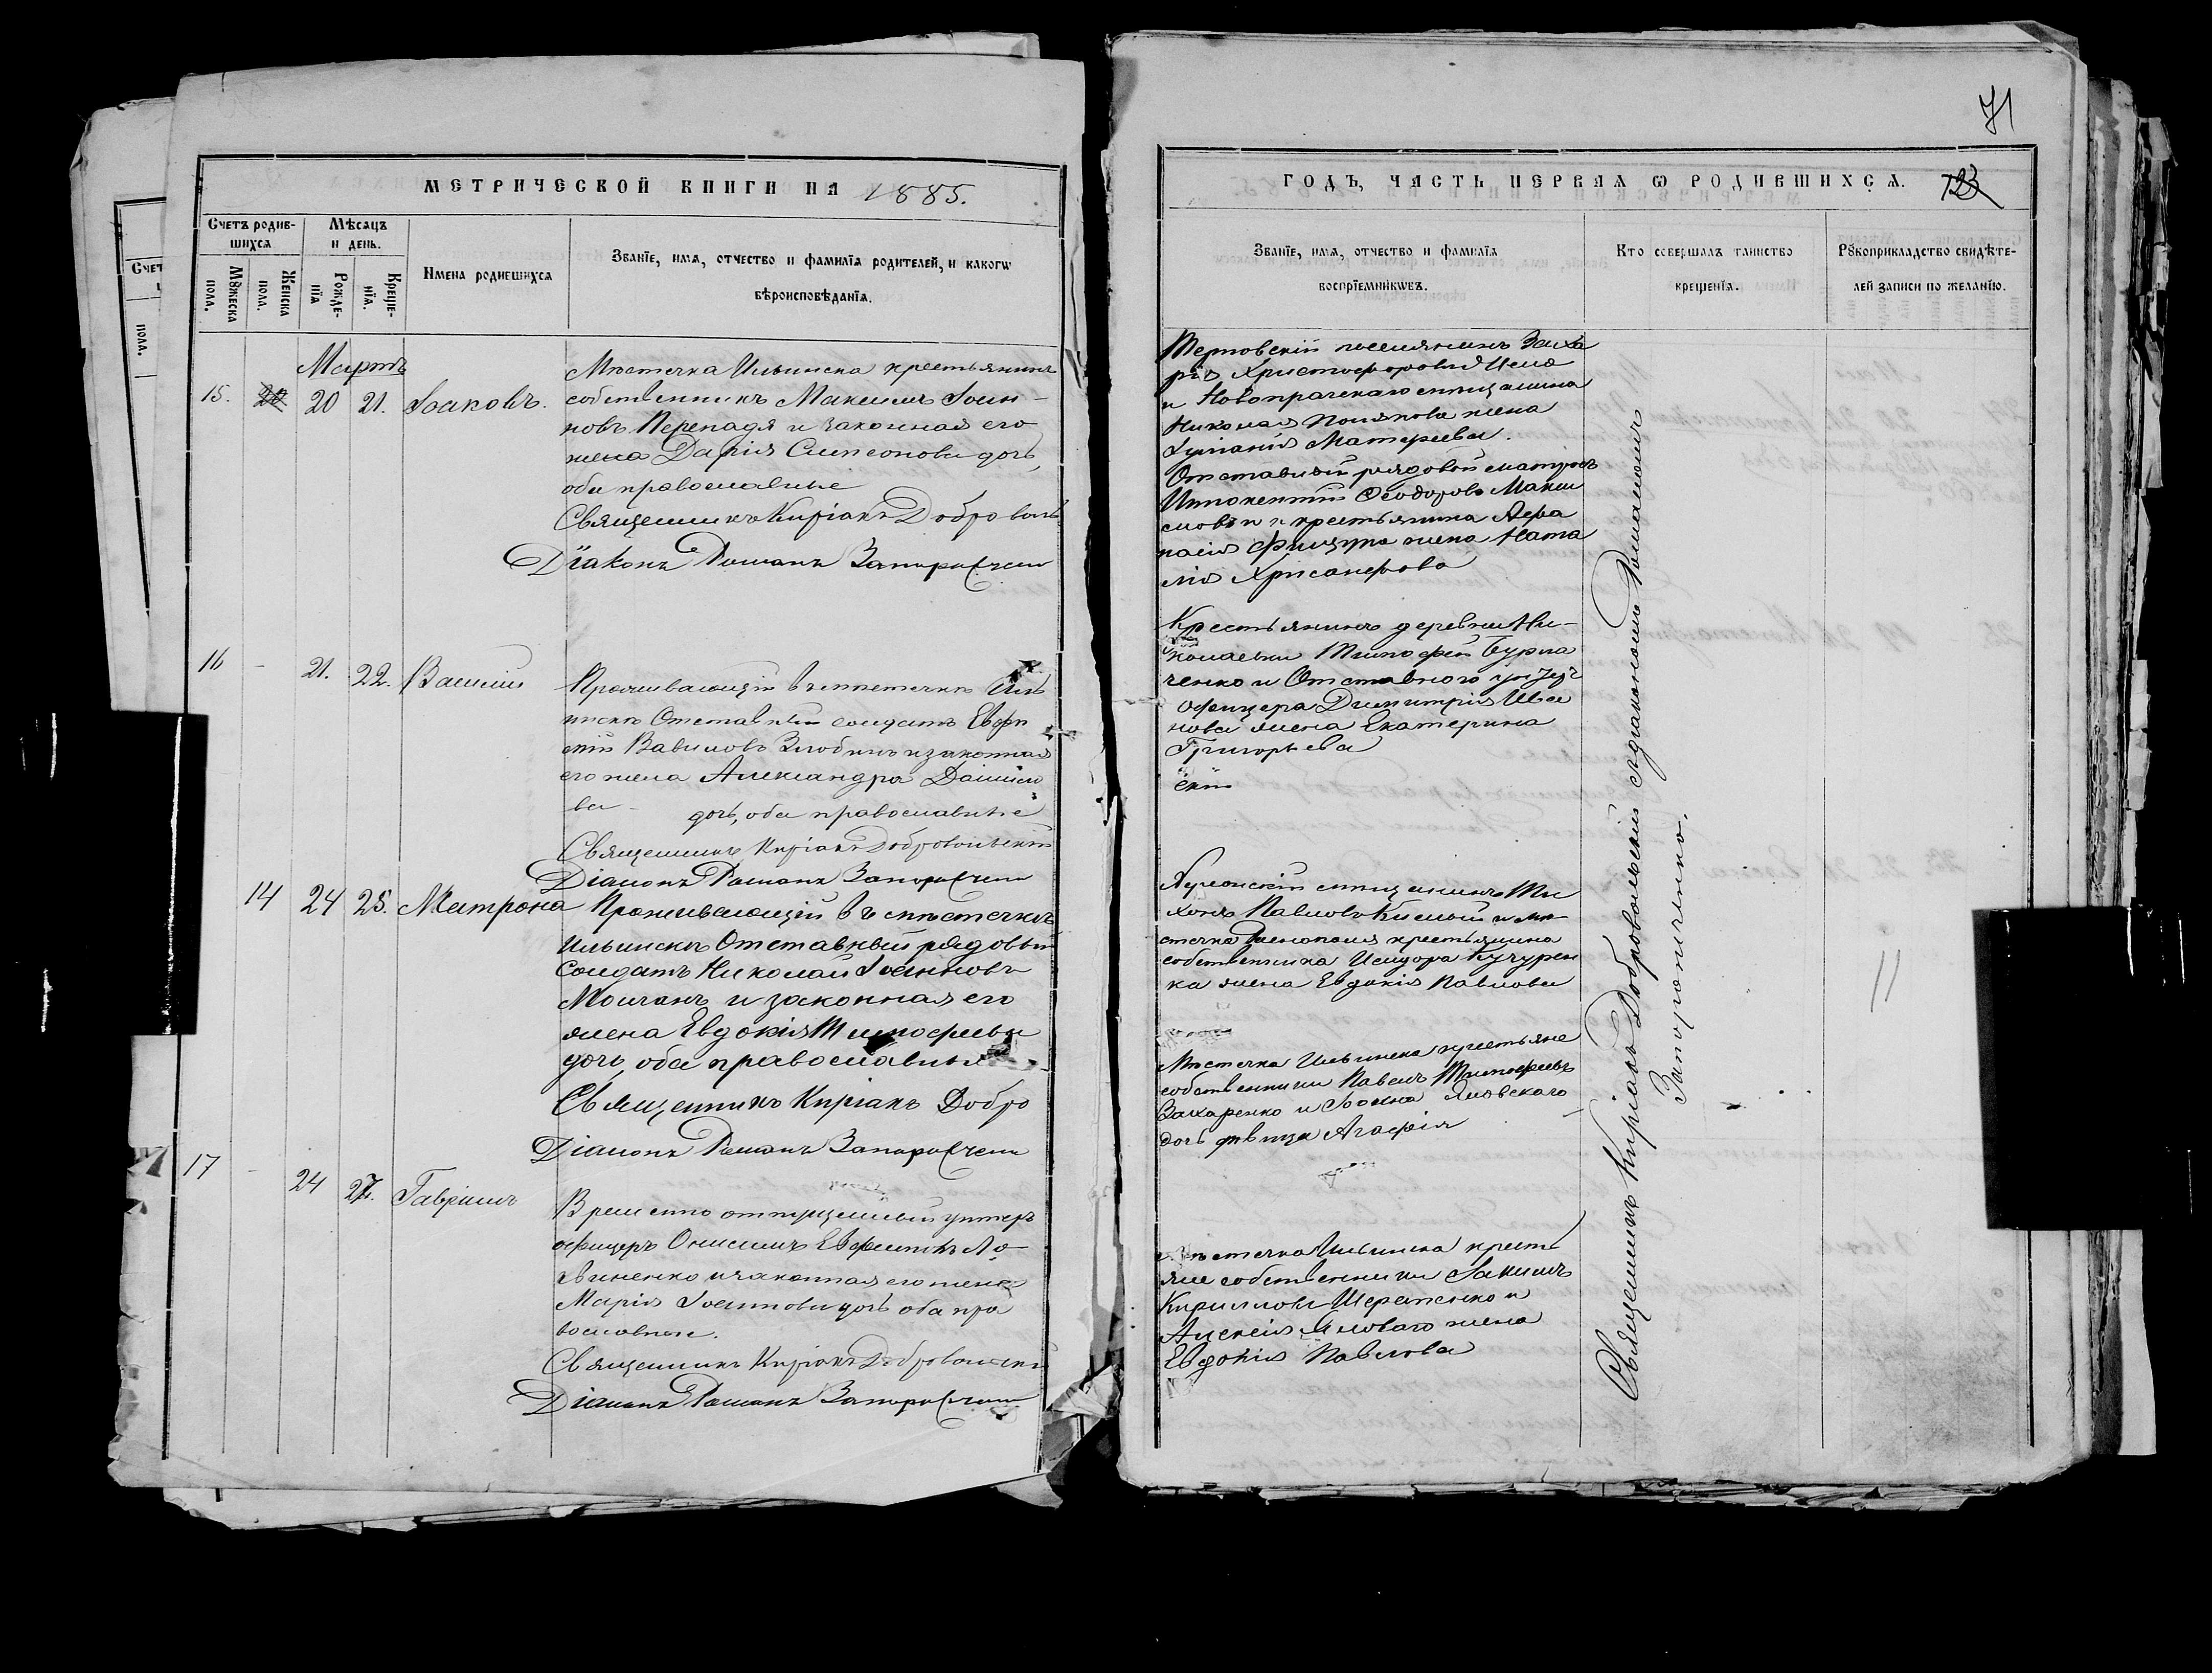 МЕТРИЧЕСКОЙ КНИГИ НА 1885.
Счетъ родив-
шихся
Мѣсяцъ
и день.
Имена родившихся
Званїе, имя, отчество и фамилїя родителей, и какогѡ
вѣроисповѣданїя.
Мꙋжеска
пола.
Женска
пола.
Рожде-
нїя
Креще-
нїя.
Мартъ
15. 20 21. Іаковъ.
Мѣстечка Ильинска крестьянинъ
собственникъ Максимъ Іоан-
новъ Перепадя и законная его
жена Дарія Симеонова дочь,
оба православные
Священникъ Киріакъ Доброволь
Діаконъ Романъ Запорожченко
16 - 21. 22. Василій
Проживающій въ мѣстечкѣ Иль
инскѣ Отставный солдатъ Евфи
мій Вавиловъ Злобинъ и законная
его жена Александра Данило
ва дочь, оба православные
Священникъ Киріакъ Добровольскій
Діаконъ Романъ Запорожченко
14 24 25. Матрона
Проживающій въ мѣстечкѣ
Ильинскѣ Отставный рядовый
Солдатъ Николай Іоанновъ
Молчанъ и законная его
жена Евдокія Тимофеева
дочь, оба православные
Священникъ Киріакъ Добро
Діаконъ Романъ Запорожченко
17 - 24 27. Гавріилъ
Временно отпущенный унтеръ
офицеръ Онисимъ Евфимовъ Ло
гвиненко и законная его жена
Марія Іоаннова дочь оба пра
вославные.
Священникъ Киріакъ Добровольскій
Діаконъ Романъ Запорожченко
71
ГОДЪ, ЧАСТЬ ПЕРВАЯ Ѡ РОДИВШИХСЯ. 123
Званїе, имя, отчество и фамилїя
воспрїемникѡвъ.
Кто совершалъ таинство
крещенїя.
Рꙋкоприкладство свидѣте-
лей записи по желанїю.
Терновскій поселянинъ Заха
рій Христофоровъ
и Новопражскаго мѣщанина
Николая Полякова жена
Матфеева.
Отставной рядовой матросъ
Иннокентій Феодоровъ Макси
мовъ и крестьянина Афа
насія жена Ната
лія Хрисанфова
Крестьянинъ деревни Ни-
колаевки Тимофей Бурла
ченко и Отставного унтеръ
офицера Димитрія Ива
нова жена Екатерина
Григорьева
Херсонскій мѣщанинъ Ти
хонъ Павловъ и мѣ
стечка крестьянина
собственника Исидора Кучурен
ка жена Евдокія Павлова
Мѣстечка Ильинска крестьяне
собственники Павелъ Тимофеевъ
Захаренко и Іоанна Яновскаго
дочь дѣвица Агафія
Мѣстечка Ильинска кресть
яне собственники Іакимъ
Кирилловъ Шеременко и
Алексія Яловаго жена
Евдокія Павлова
Священникъ Киріакъ Добровольскій съ діакономъ Романомъ
Запорожченко.